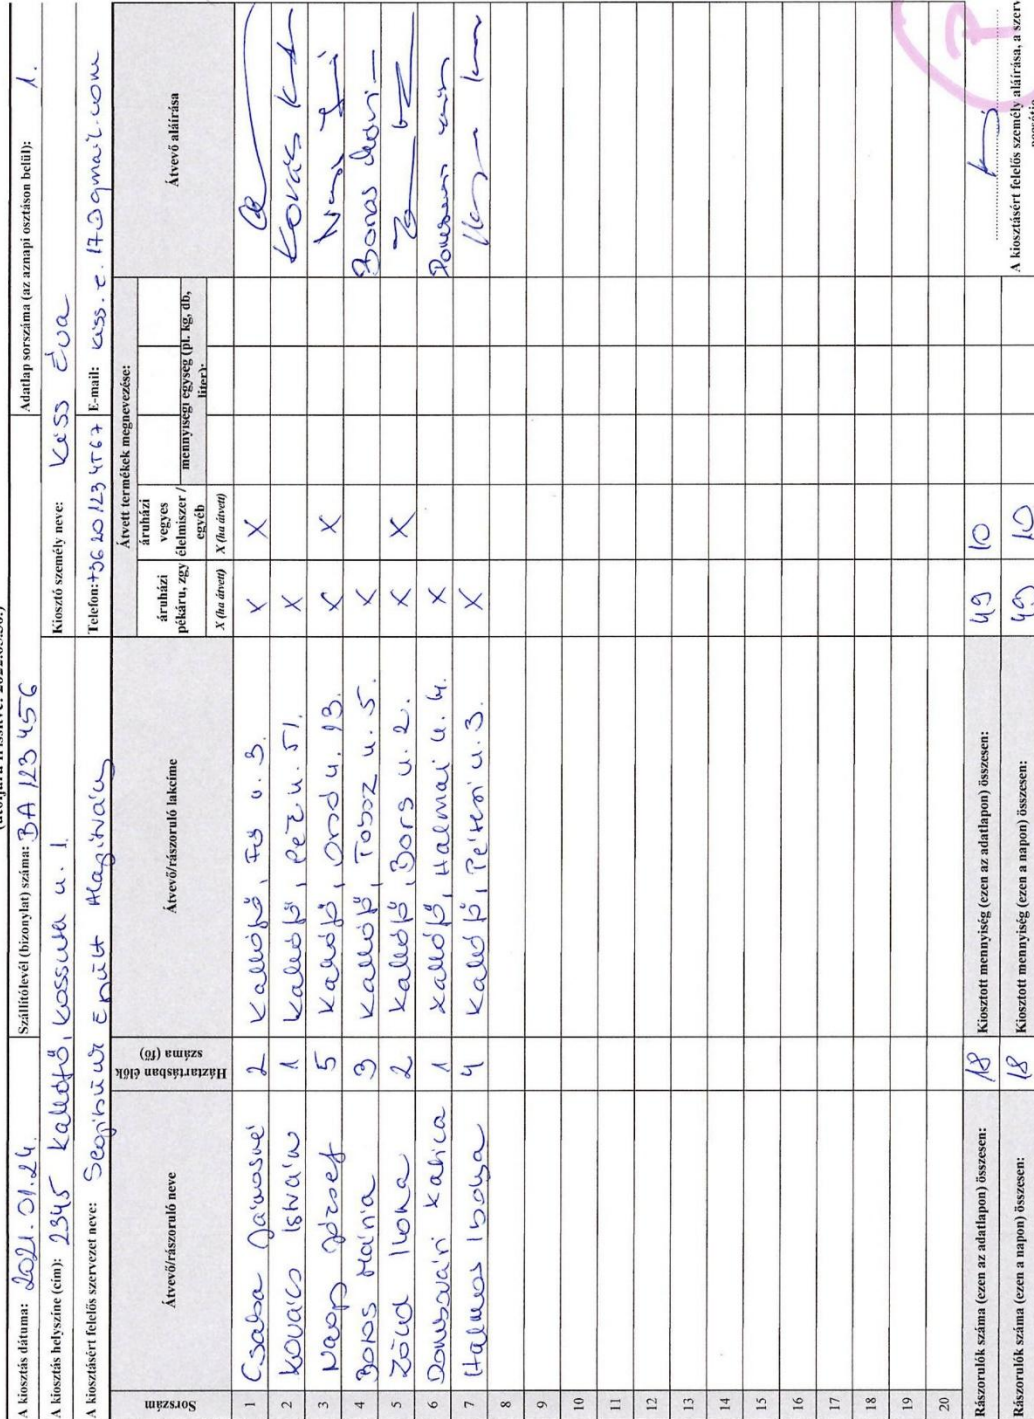 A kiosztás dátuma: 2021.01.24. Szállítólevél (bizonylat) száma: BA 123 456 Adatlap sorszáma (az aznapi osztáson belül): 1.
A kiosztás helyszíne (cím): 2345 Kallófő, Kossuth u. 1. Kiosztó személy neve: Kiss Éva
A kiosztásért felelős szervezet neve: Segítsünk Együtt Alapítvány Telefon: +36 20/123 4567 E-mail: kiss.e.17@gmail.com
Sorszám Átvevő/rászoruló neve Háztartásban élők száma (fő) Átvevő/rászoruló lakcíme Átvett termékek megnevezése: Átvevő aláírása
áruházi pékáru, zgy áruházi vegyes élelmiszer / egyéb mennyiségi egység (pl. kg, db, liter):
X (ha átvett) X (ha átvett)
1 Csaba Jánosné 2 Kallófő, Fő u. 3. X X
2 Kovács István 1 Kallófő, u. 51. X Kovács
3 Nagy József 5 Kallófő, u. 13. X X
4 Boros Mária 3 Kallófő, u. 5. X Boros Mári
5 Zöld Ilona 2 Kallófő, Bors u. 2. X X
6 Dombvári Katica 1 Kallófő, Halmai u. 4. X
7 Halmos Ibolya 4 Kallófő, Péteri u. 3. X
8
9
10
11
12
13
14
15
16
17
18
19
20
Rászorulók száma (ezen az adatlapon) összesen: 18 Kiosztott mennyiség (ezen az adatlapon) összesen: 49 10
Rászorulók száma (ezen a napon) összesen: 18 Kiosztott mennyiség (ezen a napon) összesen: 49 10
A kiosztásért felelős személy aláírása, a szerv